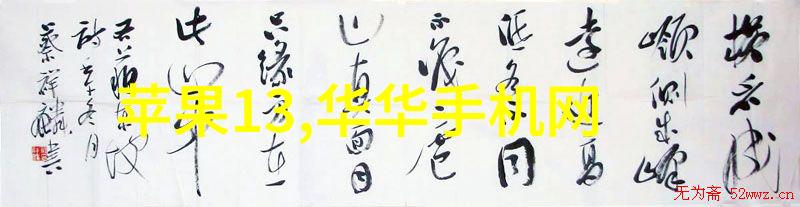 横看成
岭侧成峰
远近高
低各不同
不识庐
山真面目
只缘身在
此山中
苏东坡
诗冬月
蔡祥麟书
苹果13,华华手机网
无为斋 52wwz.cn